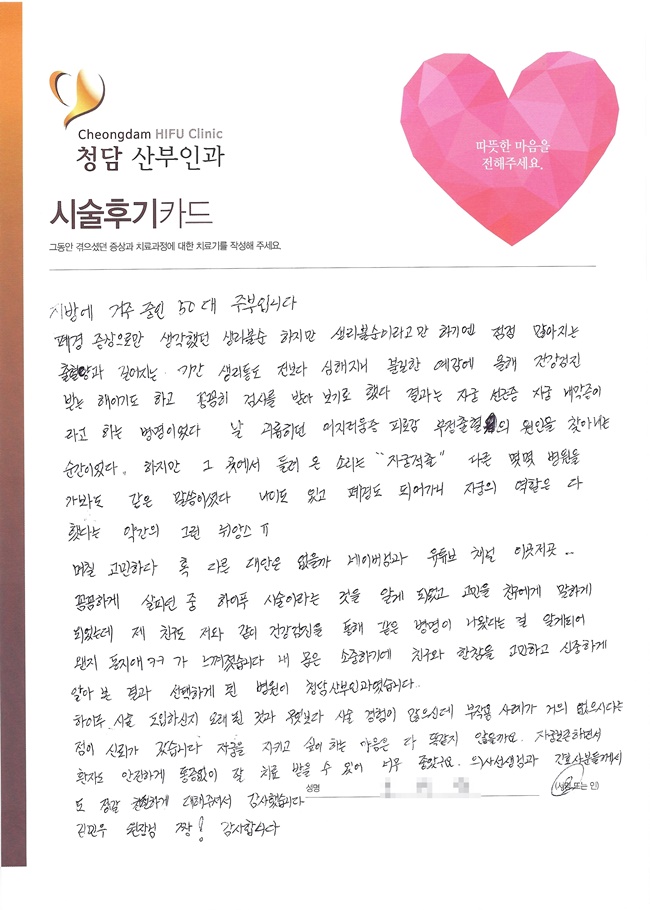 Cheongdam HIFU Clinic
청담 산부인과
따뜻한 마음을
전해주세요.
시술후기카드
그동안 겪으셨던 증상과 치료과정에 대한 치료기를 작성해 주세요.
지방에 거주 중인 50대 주부입니다
폐경 증상으로만 생각했던 생리불순 하지만 생리불순이라고만 하기엔 점점 많아지는
출혈양과 길어지는 기간 생리통도 전보다 심해지니 불길한 예감에 올해 건강검진
받는 해이기도 하고 꼼꼼히 검사를 받아 보기로 했다 결과는 자궁 선근증 자궁 내막증이
라고 하는 병명이었다 날 괴롭히던 어지러움증 피로감 부정출혈의 원인을 찾아내는
순간이었다. 하지만 그 곳에서 들려 온 소리는 "자궁적출" 다른 몇몇 병원을
가봐도 같은 말씀이셨다 나이도 있고 폐경도 되어가니 자궁의 역할은 다
했다는 약간의 그런 뉘앙스 ㅠ
며칠 고민하다 혹 다른 대안은 없을까 네이버검과 유튜브 채널 이곳저곳..
꼼꼼하게 살피던 중 하이푸 시술이라는 것을 알게 되었고 고민을 친구에게 말하게
되었는데 제 친구도 저와 같이 건강검진을 통해 같은 병명이 나왔다는 걸 알게되어
왠지 동지애ㅋㅋ가 느껴졌습니다 내 몸은 소중하기에 친구와 한참을 고민하고 신중하게
알아 본 결과 선택하게 된 병원이 청담산부인과였습니다.
하이푸 시술 도입하신지 오래 된 것과 무엇보다 시술 경험이 많으신데 부작용 사례가 거의 없으시다는
점이 신뢰가 갔습니다 자궁을 지키고 싶어 하는 마음은 다 똑같지 않을까요. 자궁보존하면서
환자도 안전하게 통증없이 잘 치료 받을 수 있어 너무 좋았구요. 의사선생님과 간호사분들께서
도 정말 친절하게 대해주셔서 감사했습니다
성명
(서명 또는 인)
김민우 원장님 짱! 감사합니다